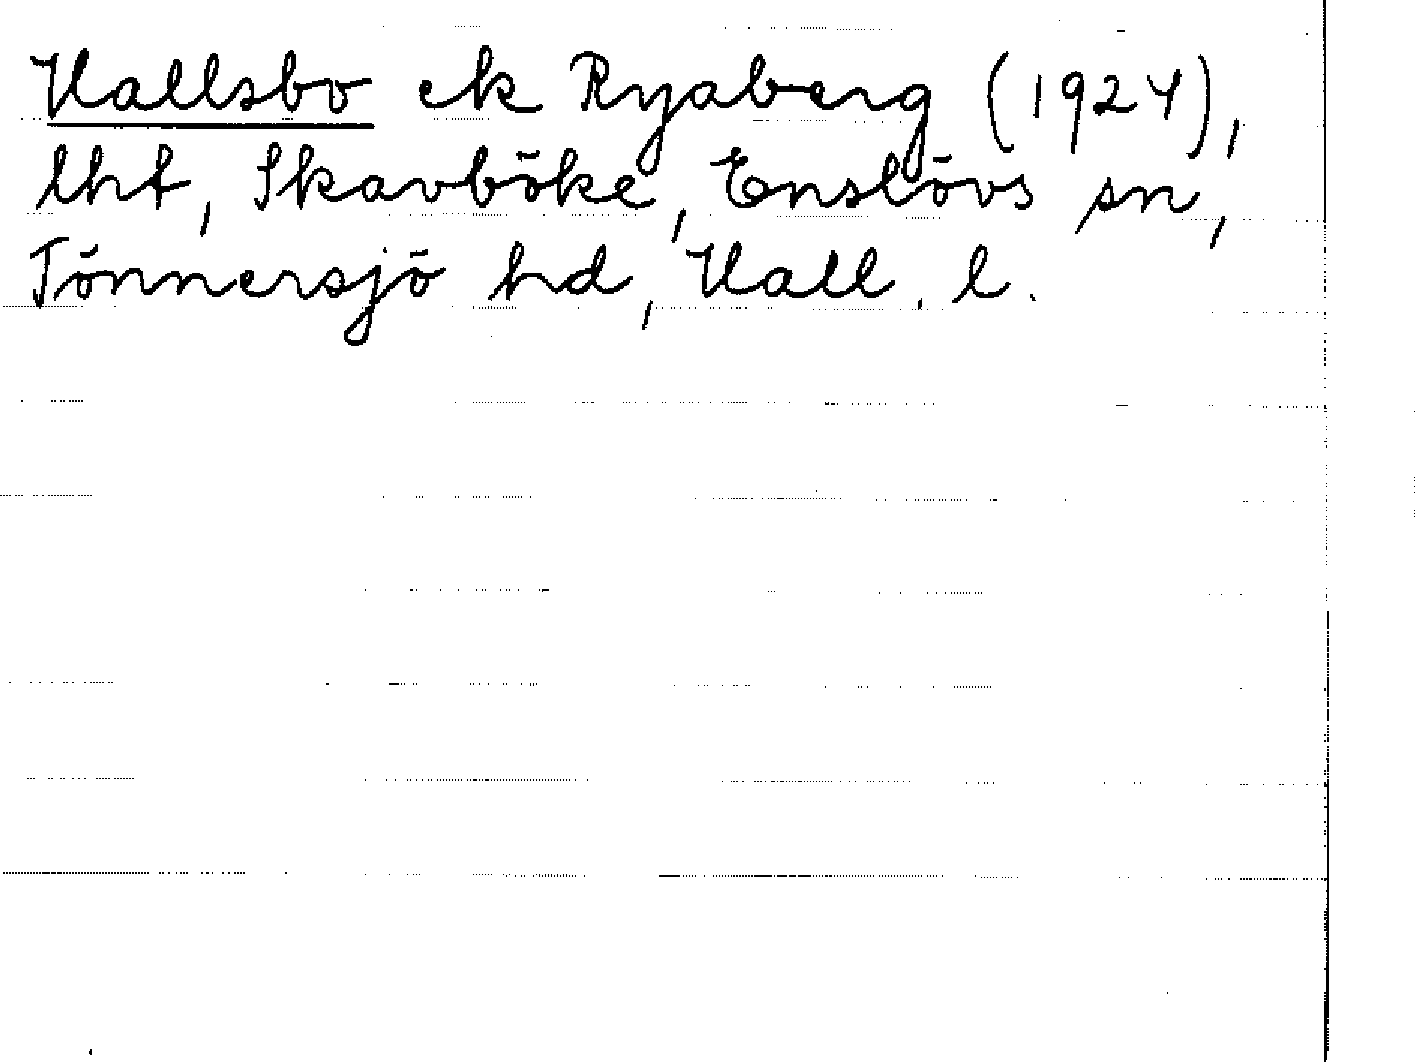 Hallsbo ek Ryaberg (1924),
lht, Skavböke, Enslövs sn,
Tönnersjö hd, Hall. l.